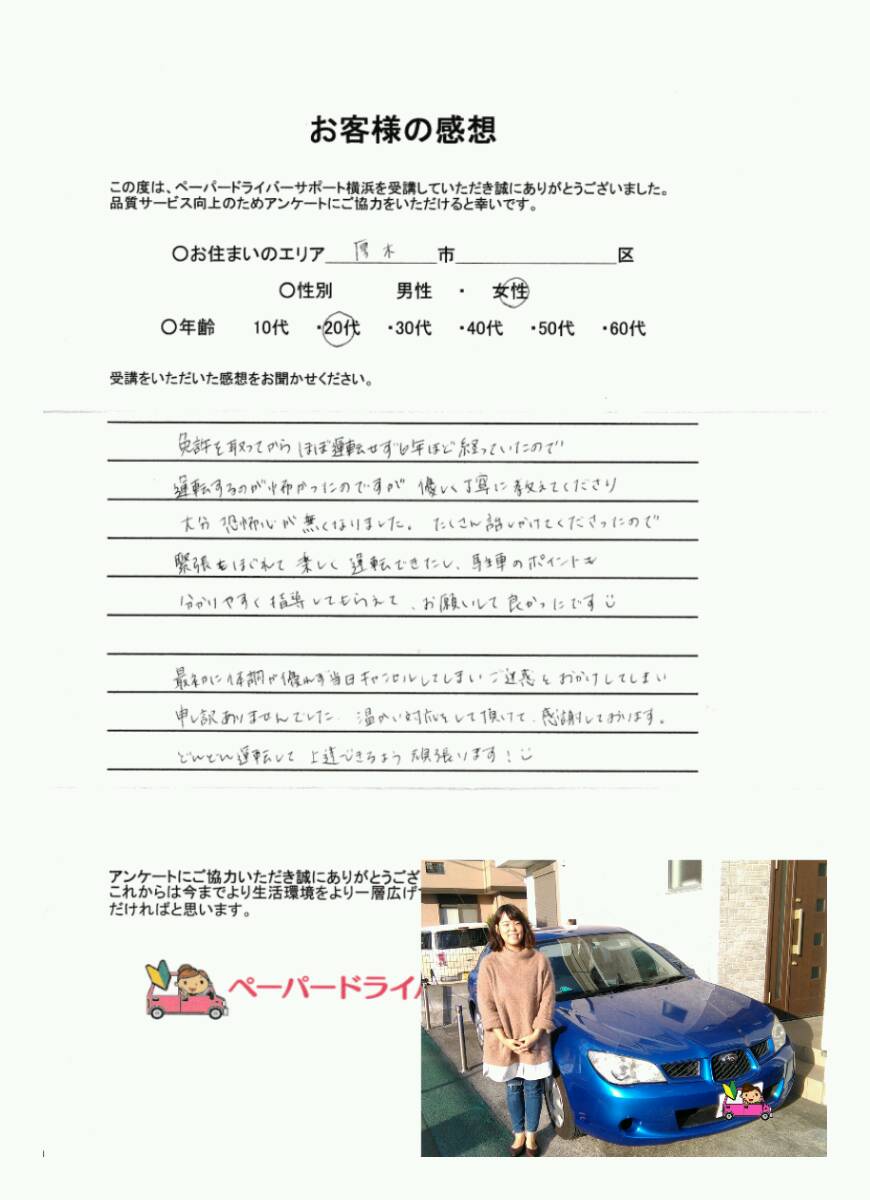 お客様の感想
この度は、ペーパードライバーサポート横浜を受講していただき誠にありがとうございました。
品質サービス向上のためアンケートにご協力をいただけると幸いです。
〇お住まいのエリア 厚木 市 区
〇性別 男性 ・ 女性
〇年齢 10代 ・20代 ・30代 ・40代 ・50代 ・60代
受講をいただいた感想をお聞かせください。
免許を取ってから ほぼ運転せず6年ほど経っていたので
運転するのが怖かったのですが 優しく丁寧に教えてくださり
大分恐怖心が無くなりました。たくさん話しかけてくださったので
緊張もほぐれて楽しく運転できたし、駐車のポイントも
分かりやすく指導してもらえて、お願いして良かったです
最初に体調が優れず当日キャンセルしてしまいご迷惑をおかけしてしまい
申し訳ありませんでした。温かい対応をして頂けて、感謝しております。
どんどん運転して上達できるよう頑張ります!
アンケートにご協力いただき誠にありがとうござ
これからは今までより生活環境をより一層広げ
だければと思います。
ペーパードライ